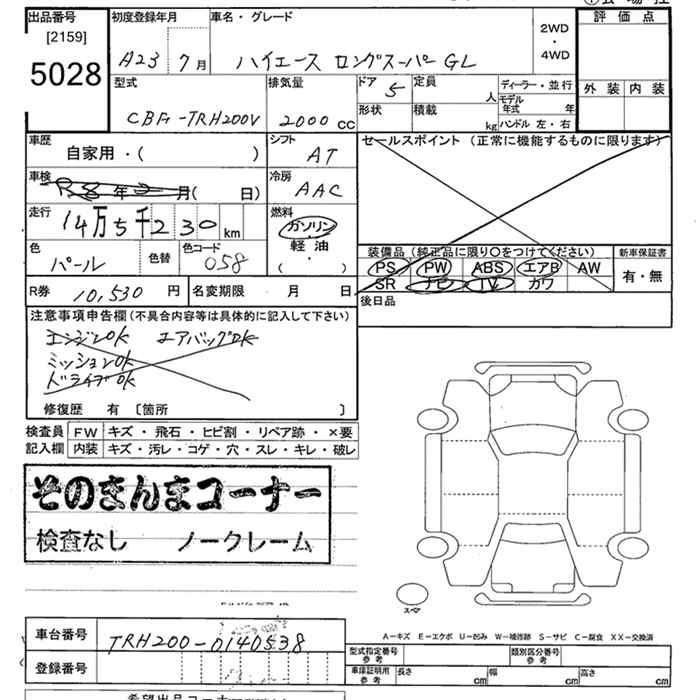 出品番号
[2159]
5028
初度登録年月
A23 7月
車名・グレード
ハイエース ロングスーパーGL
2WD
・
4WD
評価点
外装 内装
型式
CBF-TRH200V
排気量
2000 cc
ドア 5
定員
人
形状
積載
kg
ディーラー・並行
モデル年式 年
ハンドル 左・右
車歴
自家用・( )
シフト
AT
セールスポイント (正常に機能するものに限ります)
車検
R8年2月( 日)
冷房
AAC
走行
14万5千230km
燃料
ガソリン
軽油
・
( )
色
パール
色替
色コード
058
装備品 (純正品に限り○をつけてください)
PS PW ABS エアB AW
SR ナビ TV カワ
新車保証書
有・無
R券 10,530円
名変期限 月 日
後日品
注意事項申告欄 (不具合内容等は具体的に記入して下さい)
エンジンOK エアバッグOK
ミッションOK
ドライブOK
修復歴 有 〔箇所 〕
検査員記入欄
FW キズ・飛石・ヒビ割・リペア跡・×要
内装 キズ・汚レ・コゲ・穴・スレ・キレ・破レ
そのまんまコーナー
検査なし ノークレーム
スペア
車台番号
TRH200-0140538
登録番号
A-キズ E-エクボ U-凹み W-補修跡 S-サビ C-腐食 XX-交換済
型式指定番号 参考
類別区分番号 参考
車庫証明用 参考
長さ cm 幅 cm 高さ cm